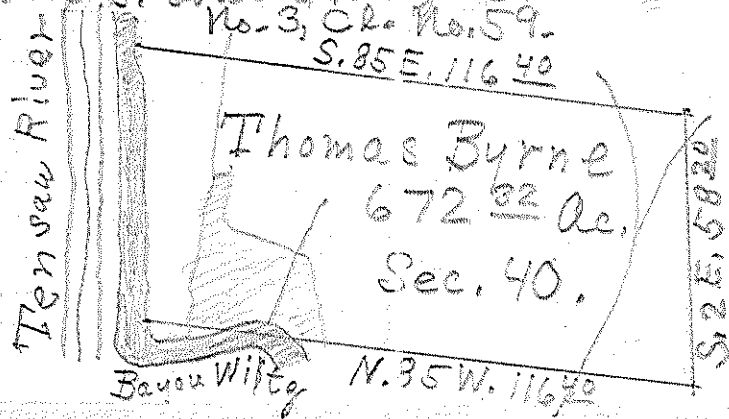 No. 3, Cl. No. 59.
S. 85 E. 116 40
Tensaw River
Thomas Byrne
672 32 Ac.
Sec. 40.
S. 2 E. 58 20
Bayou
N. 35 W. 116, 40